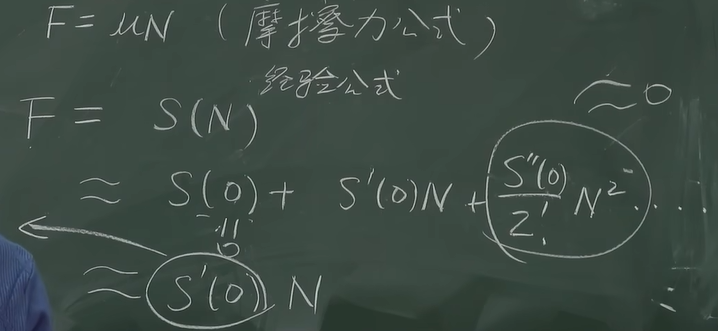 F = μN (摩擦力公式)
经验公式
≈0
F = S(N)
≈ S(0) + S'(0)N + S''(0)/2! N² ....
=0
≈ S'(0) N